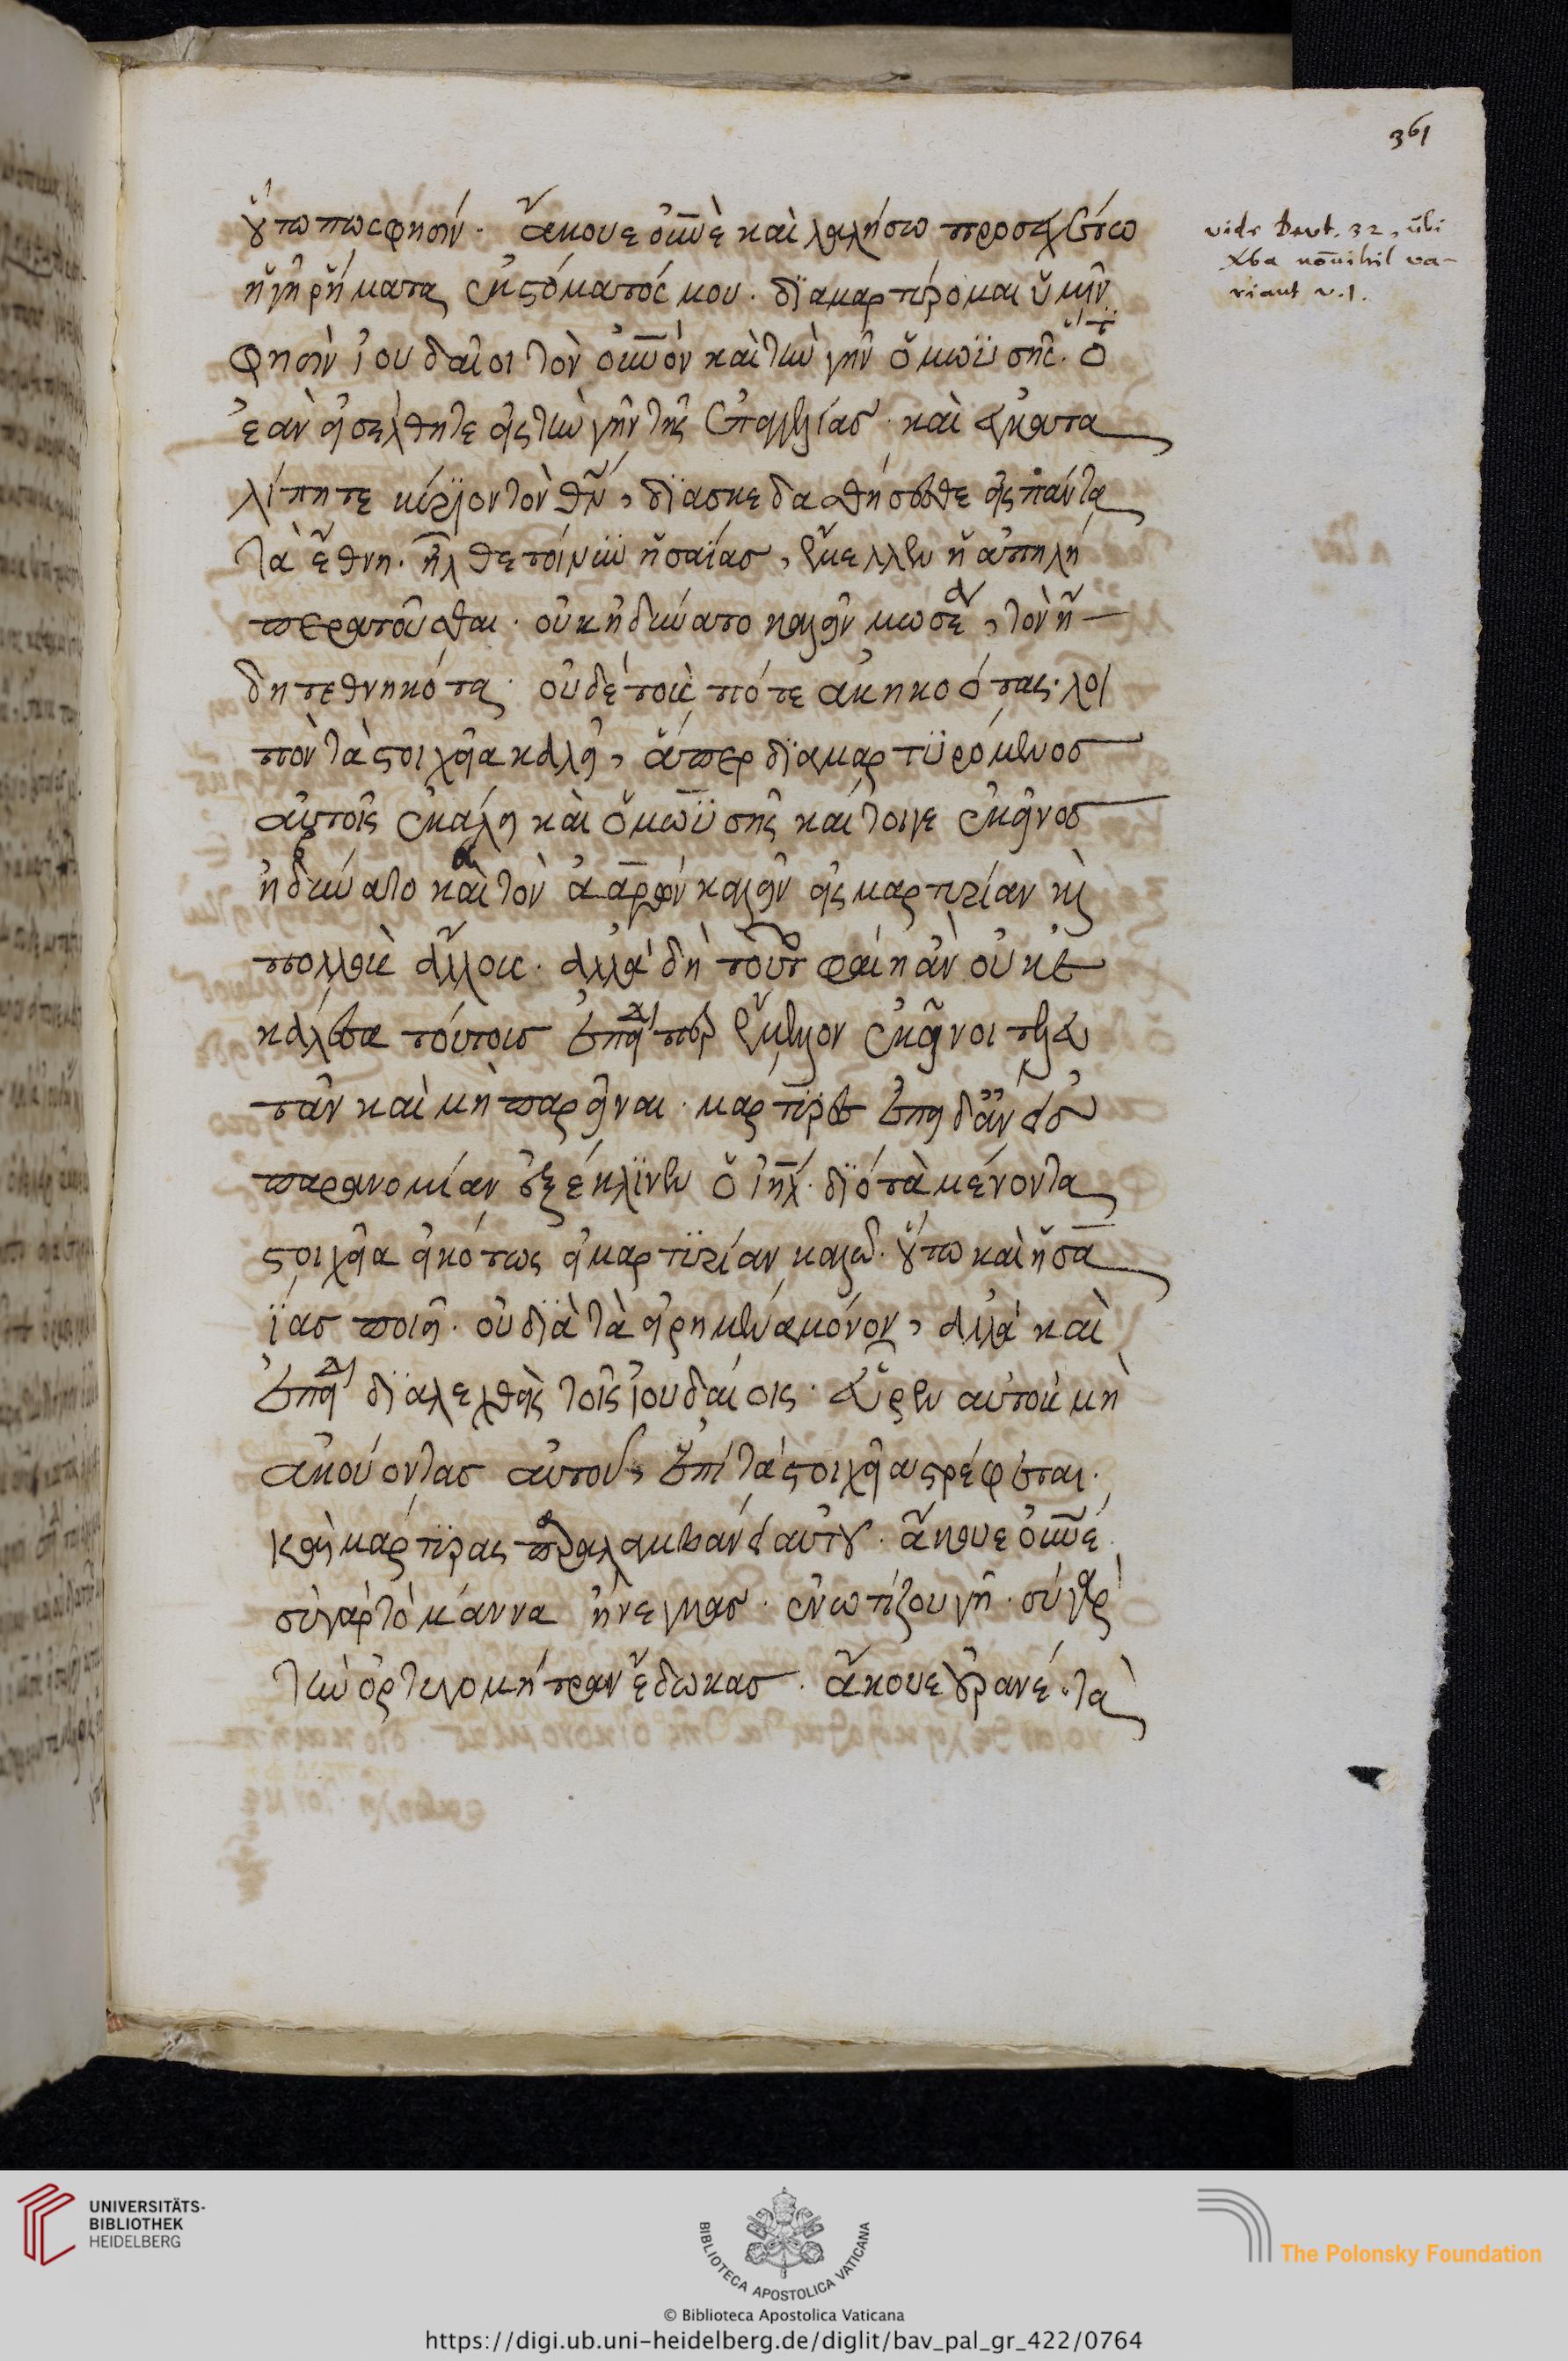 361
οὕτωπως φησίν· ἄκουε οὐνὲ καὶ λαλήσω προσεχέτω
ἡ γῆ ῥήματα ἐκ στόματός μου· διαμαρτύρομαι ὑμῖν
φησὶν ἰουδαῖοι τὸν οὐνὸν καὶ τὴν γῆν ὁ μωϋσῆς· ὅτι
ἐὰν εἰσέλθητε εἰς τὴν γῆν τῆς ἐπαγγελίας· καὶ ἐγκατα
λίπητε κύριον τὸν θν, διασκεδασθήσεσθε εἰς πάντα
τὰ ἔθνη. ἦλθε τοίνυν ἡσαΐας, ἔμελλεν ἡ ἀπειλὴ
περατοῦσθαι· οὐκ ἠδύνατο καλεῖν μωσέα, τὸν ἤ
δη τεθνηκότα· οὐδὲ τοὺς πότε ἀκηκοότας· λοι
πὸν τὰ στοιχεῖα καλεῖ, ἅπερ διαμαρτυρόμενος
αὐτοῖς ἐκάλει καὶ ὁ μωϋσῆς καίτοιγε ἐκεῖνος
ἠδύνατο καὶ τὸν ἀαρὼν καλεῖν εἰς μαρτυρίαν καὶ
πολλοὺς ἄλλους· ἀλλὰ δὴ τοῦτο φαίη ἂν οὐκ ἐ
κάλεσε τούτοις ἐπειδήπερ ἔμελλον ἐκεῖνοι τελευ
τᾶν καὶ μὴ παρεῖναι· μαρτυρεῖ ἐπειδὰν εἰς
παρανομίαν ἐξέκλινεν ὁ ἰηλ· διὸ τὰ μένοντα
στοιχεῖα εἰκότως εἰ μαρτυρίαν καλῶ· οὕτω καὶ ἡσα
ΐας ποιεῖ· οὐ διὰ τὰ εἰρημένα μόνον, ἀλλὰ καὶ
ἐπειδὴ διαλεχθεὶς τοῖς ἰουδαίοις· εὗρεν αὐτοὺς μὴ
ἀκούοντας αὐτοῦ, ἐπὶ τὰ στοιχεῖα στρέφεται·
καὶ μάρτυρας παραλαμβάνει αὐτοῦ· ἄκουε οὐνέ
σὺ γὰρ τὸ μάννα ἤνεγκας· ἐνωτίζου γῆ· σὺ γὰρ
τὴν ὀρτυγομήτραν ἔδωκας· ἄκουε οὐρανέ· τὰ
vide Deut. 32, ubi
Xba nonihil va-
riant v.1.
UNIVERSITÄTS-
BIBLIOTHEK
HEIDELBERG
BIBLIOTECA APOSTOLICA VATICANA
The Polonsky Foundation
© Biblioteca Apostolica Vaticana
https://digi.ub.uni-heidelberg.de/diglit/bav_pal_gr_422/0764